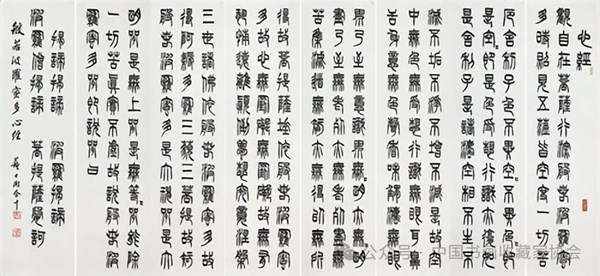 心經
觀自在菩薩行深般若波羅蜜
多時照見五蘊皆空度一切苦
厄舍利子色不異空空不異色色即
是空空即是色受想行識亦復如
是舍利子是諸法空相不生不
滅不垢不淨不增不減是故空
中無色無受想行識無眼耳鼻
舌身意無色聲香味觸法無眼
界乃至無意識界無無明亦無無明
盡乃至無老死亦無老死盡無
苦集滅道無智亦無得以無所
得故菩提薩埵依般若波羅蜜
多故心無罣礙無罣礙故無有恐
怖遠離顛倒夢想究竟涅槃
三世諸佛依般若波羅蜜多故
得阿耨多羅三藐三菩提故知
般若波羅蜜多是大神咒是大
明咒是無上咒是無等等咒能除
一切苦真實不虛故說般若波
羅蜜多咒即說咒曰
揭諦揭諦 波羅揭諦
波羅僧揭諦 菩提薩婆訶
般若波羅蜜多心經
公众号·中国书画收藏家协会